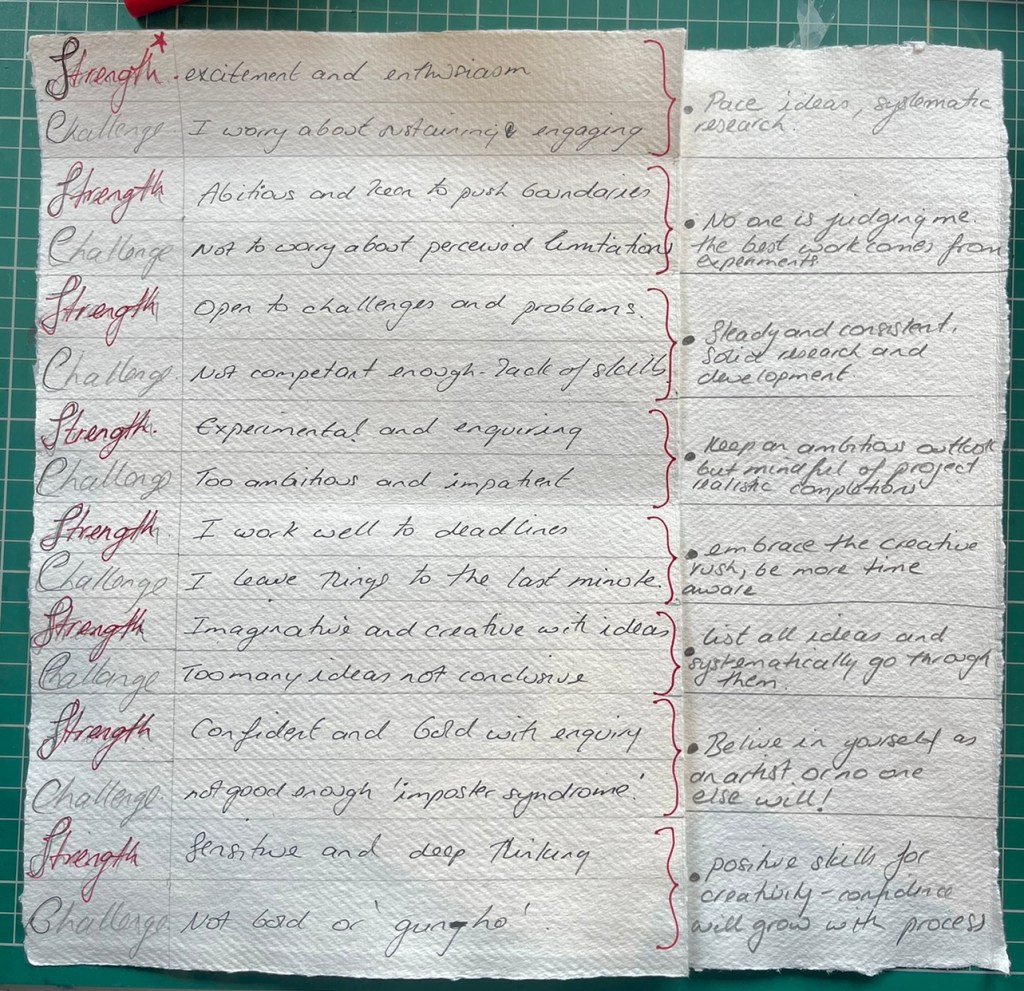 Strength . excitement and enthusiasm
Challenge I worry about sustaining & engaging
• Pace ideas, systematic
research.
Strength Abitious and keen to push boundaries
Challenge Not to worry about perceived limitations
• No one is judging me.
the best work comes from
experiments
Strength Open to challenges and problems.
Challenge. Not competant enough - lack of skills
• Steady and consistent.
Solid research and
development
Strength. Experimental and enquiring
Challenge Too ambitious and impatient
• Keep an ambitious outlook
but mindful of project
realistic completion
Strength. I work well to deadlines
Challenge I leave things to the last minute.
• embrace the creative
rush, be more time
aware
Strength Imaginative and creative with ideas
Challenge Too many ideas not conclusive
• list all ideas and
systematically go through
them.
Strength Confident and bold with enquiry
Challenge. not good enough 'imposter syndrome.'
• Belive in yourself as
an artist or no one
else will!
Strength Sensitive and deep thinking
Challenge Not bold or 'gung-ho'.
• positive skills for
creativity - confidence
will grow with process